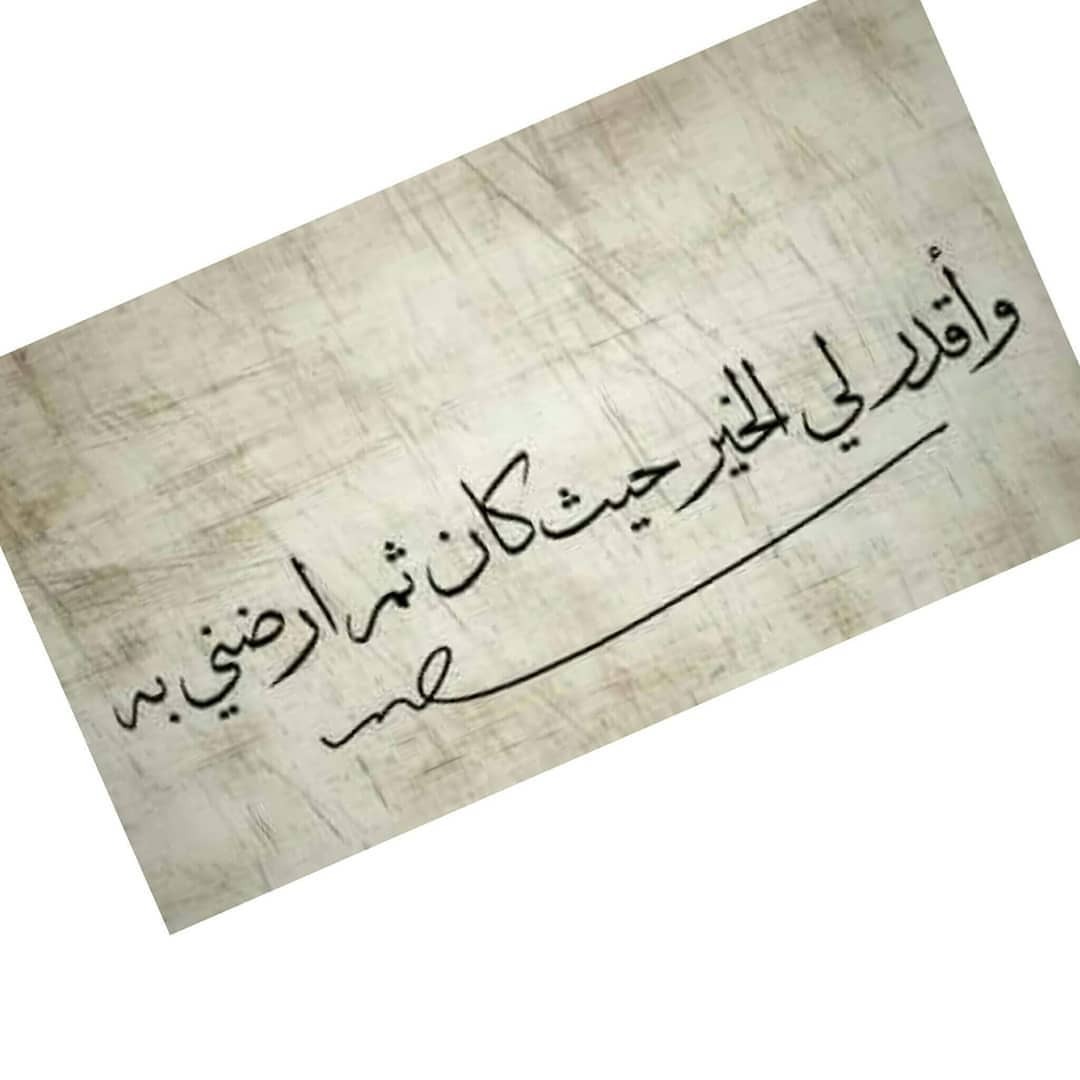 وأقدر لي الخير حيث كان ثم ارضني به